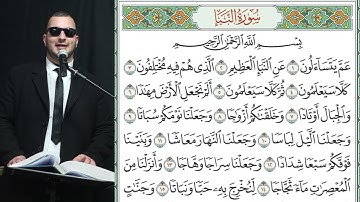 سُورَةُ النَّبَإِ
بِسْمِ اللَّهِ الرَّحْمَٰنِ الرَّحِيمِ
عَمَّ يَتَسَاءَلُونَ ١ عَنِ النَّبَإِ الْعَظِيمِ ٢ الَّذِي هُمْ فِيهِ مُخْتَلِفُونَ ٣
كَلَّا سَيَعْلَمُونَ ٤ ثُمَّ كَلَّا سَيَعْلَمُونَ ٥ أَلَمْ نَجْعَلِ الْأَرْضَ مِهَادًا ٦
وَالْجِبَالَ أَوْتَادًا ٧ وَخَلَقْنَاكُمْ أَزْوَاجًا ٨ وَجَعَلْنَا نَوْمَكُمْ سُبَاتًا ٩
وَجَعَلْنَا اللَّيْلَ لِبَاسًا ١٠ وَجَعَلْنَا النَّهَارَ مَعَاشًا ١١ وَبَنَيْنَا
فَوْقَكُمْ سَبْعًا شِدَادًا ١٢ وَجَعَلْنَا سِرَاجًا وَهَّاجًا ١٣ وَأَنْزَلْنَا مِنَ
الْمُعْصِرَاتِ مَاءً ثَجَّاجًا ١٤ لِنُخْرِجَ بِهِ حَبًّا وَنَبَاتًا ١٥ وَجَنَّاتٍ